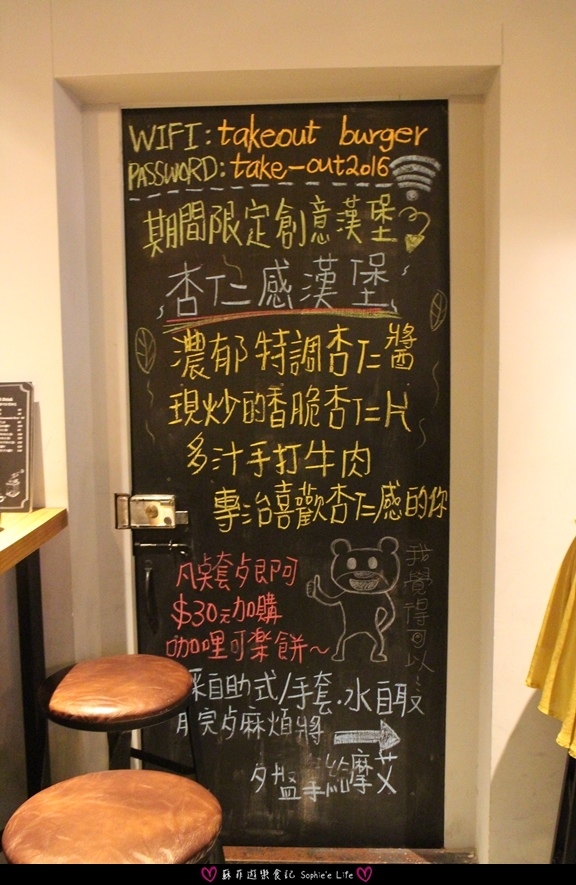 WIFI: takeout burger
PASSWORD: take-out2016
期間限定創意漢堡
杏仁感漢堡
濃郁特調杏仁醬
現炒的香脆杏仁片
多汁手打牛肉
專治喜歡杏仁感的你
我覺得可以
凡桌套歺即可
$30元加購
咖哩可樂餅~
採自助式/手套.水自取
用完歺麻煩將
歺盤
蘇菲遊樂食記 Sophie'e Life